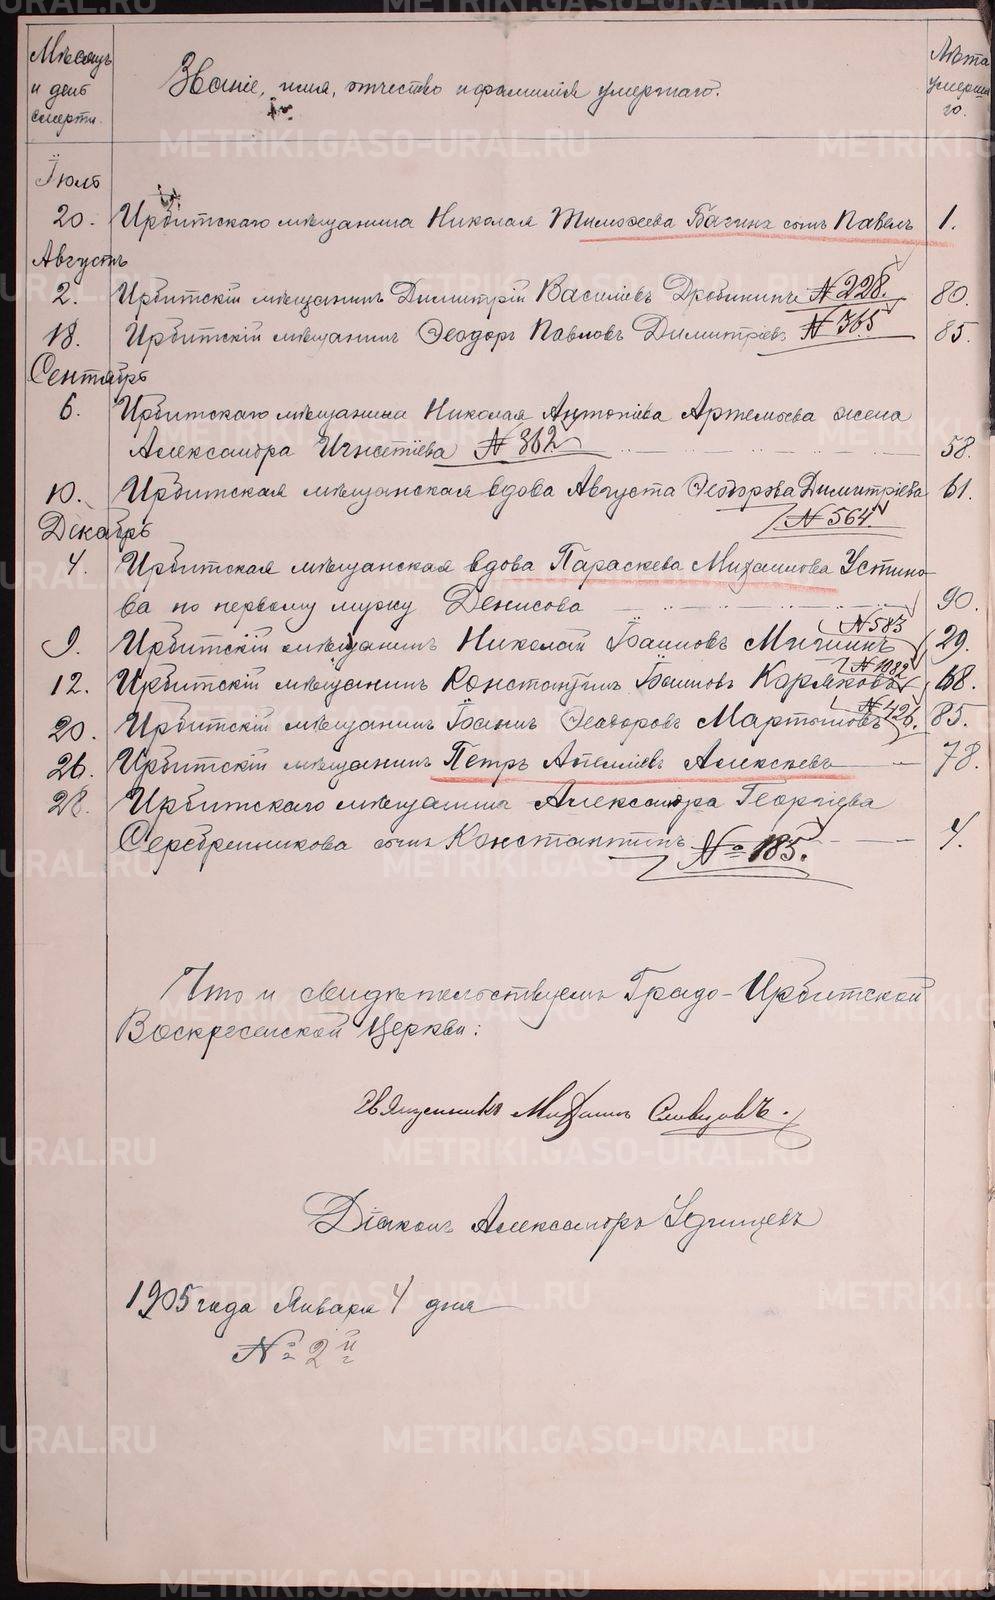 Мѣсяцъ
и день
смерти.
Званіе, имя, отчество и фамилія умершаго.
Лѣта
умерша
го.
Іюль
20. Ирбитскаго мѣщанина Николая Тимоѳеева Вагина сынъ Павелъ 1.
Августъ
2. Ирбитскій мѣщанинъ Димитрій Василіевъ Дробининъ № 228. 80.
18. Ирбитскій мѣщанинъ Ѳеодоръ Павловъ Димитріевъ № 365 85.
Сентябрь
6. Ирбитскаго мѣщанина Николая Антоніева Артемьева жена
Александра Игнатіева № 362 58.
10. Ирбитская мѣщанская вдова Августа Ѳеодорова Димитріева 61.
№ 564.
Декабрь
4. Ирбитская мѣщанская вдова Параскева Михаилова Устино-
ва по первому мужу Денисова 90.
№ 583
9. Ирбитскій мѣщанинъ Николай Іоанновъ Мичининъ 29.
№ 1082
12. Ирбитскій мѣщанинъ Константинъ Іоанновъ Коряковъ 68.
№ 426.
20. Ирбитскій мѣщанинъ Іоаннъ Ѳеодоровъ Мартышовъ 85.
26. Ирбитскій мѣщанинъ Петръ Апелліевъ Алексѣевъ 78.
28. Ирбитскаго мѣщанина Александра Георгіева
Серебренникова сынъ Константинъ № 185. 4.
Что и свидѣтельствуемъ Градо-Ирбитской
Воскресенской Церкви:
Священникъ Михаилъ Словцовъ.
Діаконъ Александръ
1905 года Января 4 дня
№ 2й
METRIKI.GASO-URAL.RU